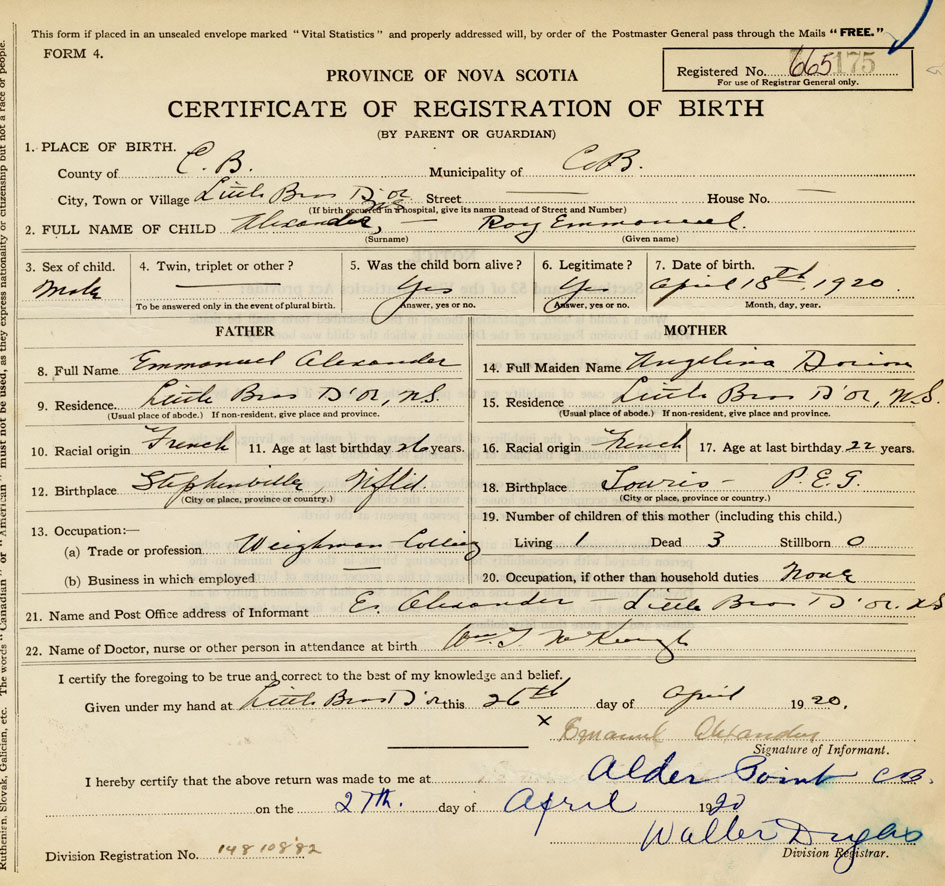 This form if placed in an unsealed envelope marked "Vital Statistics" and properly addressed will, by order of the Postmaster General pass through the Mails "FREE."
FORM 4.
Registered No. 665 175
For use of Registrar General only.
PROVINCE OF NOVA SCOTIA
CERTIFICATE OF REGISTRATION OF BIRTH
(BY PARENT OR GUARDIAN)
1. PLACE OF BIRTH.
County of C. B. Municipality of C. B.
City, Town or Village Little Bras D'or Street — House No. —
(If birth occurred in a hospital, give its name instead of Street and Number)
2. FULL NAME OF CHILD Alexander, — Roy Emmanuel.
(Surname) (Given name)
3. Sex of child. 4. Twin, triplet or other? 5. Was the child born alive? 6. Legitimate? 7. Date of birth.
Male — Yes Yes April 18th, 1920
To be answered only in the event of plural birth. Answer, yes or no. Answer, yes or no. Month, day, year.
FATHER MOTHER
8. Full Name Emmanuel Alexander 14. Full Maiden Name Angelina
9. Residence. Little Bras D'or, N.S. 15. Residence Little Bras D'or, N.S.
(Usual place of abode.) If non-resident, give place and province. (Usual place of abode.) If non-resident, give place and province.
10. Racial origin French 11. Age at last birthday 26 years. 16. Racial origin French 17. Age at last birthday 22 years.
12. Birthplace Stephenville, Nfld. 18. Birthplace Souris — P.E.I.
(City or place, province or country.) (City or place, province or country.)
13. Occupation:— 19. Number of children of this mother (including this child.)
(a) Trade or profession Weighman — Colliery Living 1 Dead 3 Stillborn 0
(b) Business in which employed — 20. Occupation, if other than household duties None
21. Name and Post Office address of Informant E. Alexander — Little Bras D'or. N.S
22. Name of Doctor, nurse or other person in attendance at birth Wm. J. McKeough
I certify the foregoing to be true and correct to the best of my knowledge and belief.
Given under my hand at Little Bras D'or this 26th day of April 1920.
x Emanuel Alexander
Signature of Informant.
I hereby certify that the above return was made to me at Alder Point C B.
on the 27th. day of April 1920
Walter
Division Registrar.
Division Registration No. 14810882
Ruthenian, Slovak, Galician, etc. The words "Canadian" or "American" must not be used, as they express nationality or citizenship but not a race or people.